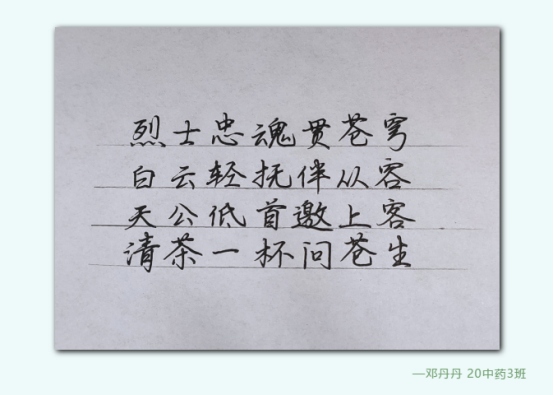 烈士忠魂贯苍穹
白云轻抚伴从容
天公低首邀上客
清茶一杯问苍生
—邓丹丹 20中药3班